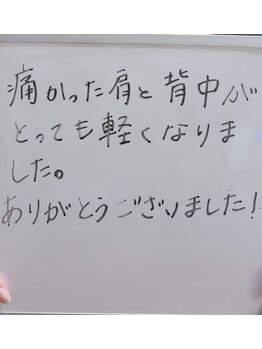 痛かった肩と背中が
とっても軽くなりま
した。
ありがとうございました!